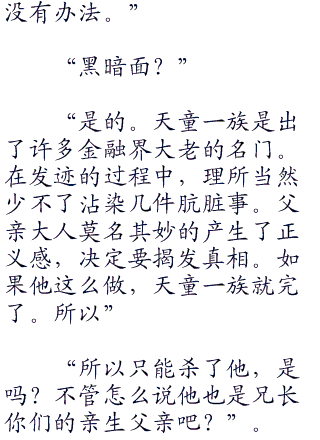 没有办法。”
“黑暗面？”
“是的。天童一族是出
了许多金融界大老的名门。
在发迹的过程中，理所当然
少不了沾染几件肮脏事。父
亲大人莫名其妙的产生了正
义感，决定要揭发真相。如
果他这么做，天童一族就完
了。所以”
“所以只能杀了他，是
吗？不管怎么说他也是兄长
你们的亲生父亲吧？”。